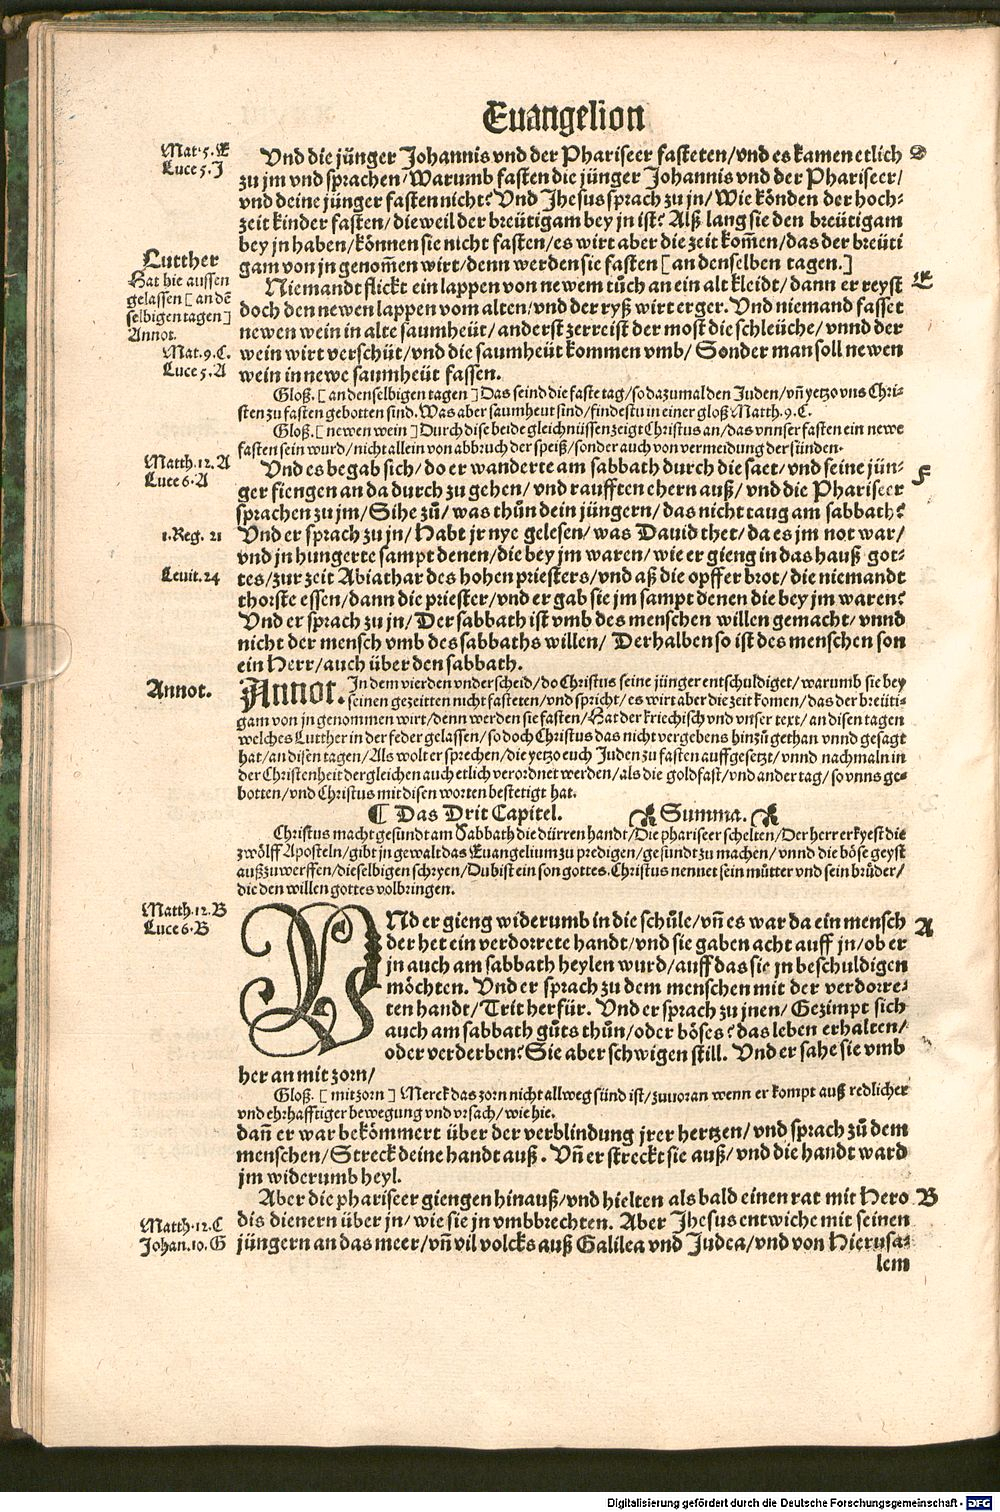 Euangelion
Mat. 5. E
Luce 5. J
Vnd die jünger Johannis vnd der Phariseer fasteten/ vnd es kamen etlich D
zu jm vnd sprachen/ Warumb fasten die jünger Johannis vnd der Phariseer/
vnd deine jünger fasten nicht? Vnd Jhesus sprach zu jn/ Wie könden der hoch-
zeit kinder fasten/ dieweil der breütigam bey jn ist? Alß lang sie den breütigam
bey jn haben/ können sie nicht fasten/ es wirt aber die zeit kom̃en/ das der breüti
gam von jn genom̃en wirt/ denn werden sie fasten [ an denselben tagen.]
Lutther
Hat hie aussen
gelassen [ an dẽ
selbigen tagen ]
Annot.
Mat. 9. C.
Luce 5. A
Niemandt flickt ein lappen von newem tůch an ein alt kleidt/ dann er reyst E
doch den newen lappen vom alten/ vnd der ryß wirt erger. Vnd niemand fasset
newen wein in alte saumheüt/ anderst zerreist der most die schleüche/ vnnd der
wein wirt verschüt/ vnd die saumheüt kommen vmb/ Sonder man soll newen
wein in newe saumheüt fassen.
Gloß. [ an denselbigen tagen ] Das seind die fastetag/ so dazumal den Juden/ vñ yetzo vns Chri-
sten zu fasten gebotten sind. Was aber saumheut sind/ findestu in einer gloß Matth. 9. C.
Gloß. [ newen wein ] Durch dise beide gleichnüssen zeigt Christus an/ das vnnser fasten ein newe
fasten sein wurd/ nicht allein von abbruch der speiß/ sonder auch von vermeidung der sünden.
Matth. 12. A
Luce 6. A
Vnd es begab sich/ do er wanderte am sabbath durch die saet/ vnd seine jün- F
ger fiengen an da durch zu gehen/ vnd raufften ehern auß/ vnd die Phariseer
sprachen zu jm/ Sihe zů/ was thůn dein jüngern/ das nicht taug am sabbath?
1. Reg. 21
Vnd er sprach zu jn/ Habt jr nye gelesen/ was Dauid thet/ da es jm not war/
vnd jn hungerte sampt denen/ die bey jm waren/ wie er gieng in das hauß got-
Leuit. 24
tes/ zur zeit Abiathar des hohen priesters/ vnd aß die opffer brot/ die niemandt
thorste essen/ dann die priester/ vnd er gab sie jm sampt denen die bey jm waren?
Vnd er sprach zu jn/ Der sabbath ist vmb des menschen willen gemacht/ vnnd
nicht der mensch vmb des sabbaths willen/ Derhalben so ist des menschen son
ein Herr/ auch über den sabbath.
Annot.
Annot. In dem vierden vnderscheid/ do Christus seine jünger entschuldiget/ warumb sie bey
seinen gezeitten nicht fasteten/ vnd spricht/ es wirt aber die zeit komen/ das der breüti-
gam von jn genommen wirt/ denn werden sie fasten/ Hat der kriechisch vnd vnser text/ an disen tagen
welches Lutther in der feder gelassen/ so doch Christus das nicht vergebens hinzů gethan vnnd gesagt
hat/ an disen tagen/ Als wolt er sprechen/ die yetzo euch Juden zu fasten auffgesetzt/ vnnd nachmaln in
der Christenheit dergleichen auch etlich verordnet werden/ als die goldfast/ vnd ander tag/ so vnns ge-
botten/ vnd Christus mit disen worten bestetigt hat.
¶ Das Drit Capitel. Summa.
Christus macht gesundt am Sabbath die dürren handt/ Die phariseer schelten/ Der herr erkyest die
zwölff Aposteln/ gibt jn gewalt das Euangelium zu predigen/ gesundt zu machen/ vnnd die böse geyst
außzuwerffen/ dieselbigen schryen/ Du bist ein son gottes. Christus nennet sein mütter vnd sein brüder/
die den willen gottes volbringen.
Matth. 12. B
Luce 6. B
VNd er gieng widerumb in die schůle/ vñ es war da ein mensch A
der het ein verdorrete handt/ vnd sie gaben acht auff jn/ ob er
jn auch am sabbath heylen wurd/ auff das sie jn beschuldigen
möchten. Vnd er sprach zu dem menschen mit der verdorre-
ten handt/ Trit herfür. Vnd er sprach zu jnen/ Gezimpt sich
auch am sabbath gůts thůn/ oder böses? das leben erhalten/
oder verderben? Sie aber schwigen still. Vnd er sahe sie vmb
her an mit zorn/
Gloß. [ mit zorn ] Merck das zorn nicht allweg sünd ist/ zuuoran wenn er kompt auß redlicher
vnd ehrhafftiger bewegung vnd vrsach/ wie hie.
dañ er war bekömmert über der verblindung jrer hertzen/ vnd sprach zů dem
menschen/ Streck deine handt auß. Vñ er streckt sie auß/ vnd die handt ward
jm widerumb heyl.
Aber die phariseer giengen hinauß/ vnd hielten als bald einen rat mit Hero B
Matth. 12. C
Johan. 10. G
dis dienern über jn/ wie sie jn vmbbrechten. Aber Jhesus entwiche mit seinen
jüngern an das meer/ vñ vil volcks auß Galilea vnd Judea/ vnd von Hierusa-
lem
Digitalisierung gefördert durch die Deutsche Forschungsgemeinschaft - DFG